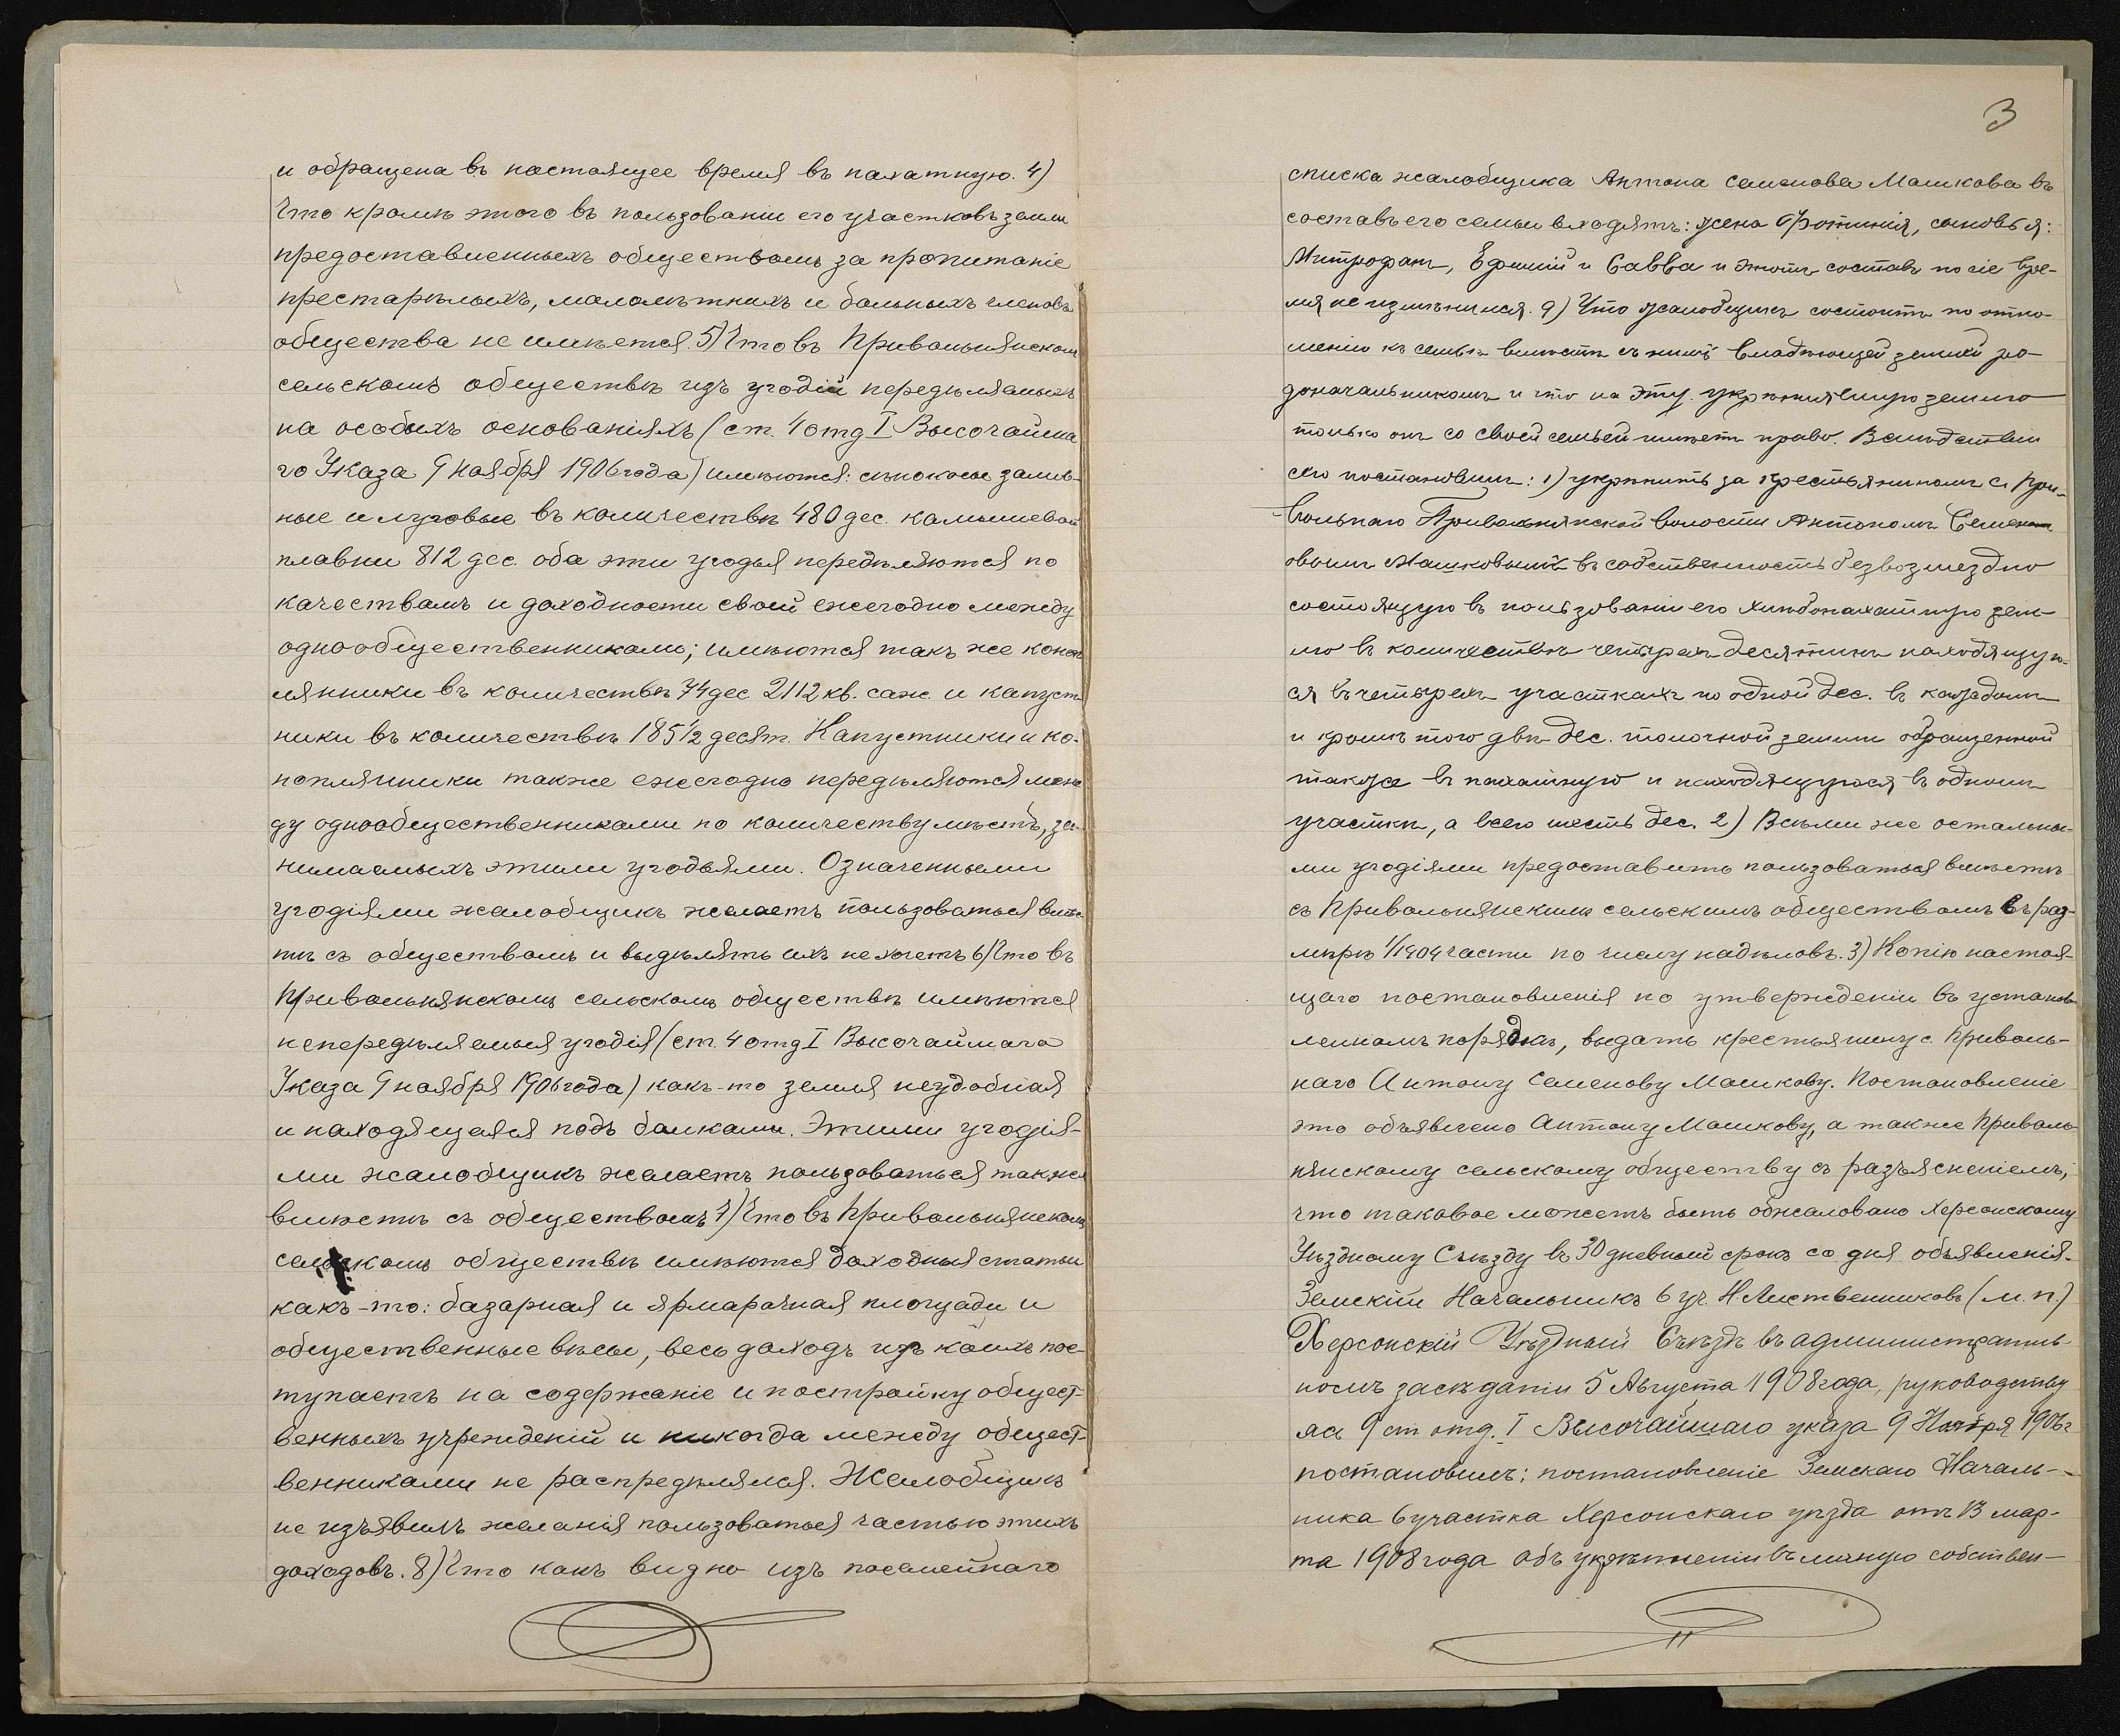 и обращена въ настоящее время въ пахатную. 4)
Что кромѣ этого въ пользованіи его участковъ земли
предоставленныхъ обществомъ за пропитаніе
престарѣлыхъ, малолѣтнихъ и больныхъ членовъ
общества не имѣется. 5) Что въ Привольнянском
сельскомъ обществѣ изъ угодій передѣляемыхъ
на особыхъ основаніяхъ (ст. 4 отд I Высочайша
го Указа 9 ноября 1906 года) имѣются: сѣнокосы залив-
ные и луговые въ количествѣ 480 дес. камышевой
плавни 812 дес. оба эти угодья передѣляются по
качествамъ и доходности своей ежегодно между
однообщественниками; имѣются такъ же коноп
лянники въ количествѣ 74 дес 2112 кв. саж. и капуст
ники въ количествѣ 185 1/2 десят. Капустники и ко-
ноплянники также ежегодно передѣляются меж
ду однообщественниками по количеству мѣстъ, за-
нимаемыхъ этими угодьями. Означенными
угодіями жалобщикъ желаетъ пользоваться вмѣс-
тѣ съ обществомъ и выдѣлять ихъ не хочетъ 6) Что въ
Привольнянскомъ сельскомъ обществѣ имѣются
непередѣляемыя угодія (ст. 4 отд I Высочайшаго
Указа 9 ноября 1906 года) какъ-то земля неудобная
и находящаяся подъ балками. Этими угодія-
ми жалобщикъ желаетъ пользоваться также
вмѣстѣ съ обществомъ 7) Что въ Привольнянскомъ
сельскомъ обществѣ имѣются доходныя статьи
какъ-то: базарная и ярмарачная площади и
общественные вѣсы, весь доходъ изъ коихъ пос-
тупаетъ на содержаніе и постройку общест-
венныхъ учрежденій и никогда между общест-
венниками не распредѣлялся. Жалобщикъ
не изъявилъ желанія пользоваться частью этихъ
доходовъ. 8) Что какъ видно изъ посемейнаго
3
списка жалобщика Антона Семенова Машкова въ
составъ его семьи входятъ: жена Фотинія, сыновья:
Митрофанъ, Ефимій и Савва и этотъ составъ по сіе вре-
мя не измѣнился. 9) Что жалобщикъ состоитъ по отно-
шенію къ семьѣ вмѣстѣ съ нимъ владѣющей землей ро-
доначальникомъ и что на эту укрѣпляемую землю
только онъ со своей семьей имѣетъ право. Вслѣдствіи
сего постановилъ: 1) укрѣпить за крестьяниномъ с. При-
вольнаго Привольнянской волости Антономъ Семен
овымъ Машковымъ въ собственность безвозмездно
состоящую въ пользованіи его хлѣбопахатную зем-
лю въ количествѣ четырехъ десятинъ находящую-
ся въ четырехъ участкахъ по одной дес. въ каждомъ
и кромѣ того двѣ дес. толочной земли обращенной
также въ пахатную и находящуюся въ одномъ
участкѣ, а всего шесть дес. 2) Всѣми же остальны-
ми угодіями предоставить пользоваться вмѣстѣ
съ Привольнянскимъ сельскимъ обществомъ въ раз-
мѣрѣ 1/1904 части по числу надѣловъ. 3) Копію настоя-
щаго постановленія по утвержденіи въ установ-
ленномъ порядкѣ, выдать крестьянину с. Приволь-
наго Антону Семенову Машкову. Постановленіе
это объявлено Антону Машкову, а также Приволь-
нянскому сельскому обществу съ разъясненіемъ,
что таковое можетъ быть обжаловано Херсонскому
Уѣздному Съѣзду въ 30 дневный срокъ со дня объявленія.
Земскій Начальникъ 6 уч. Н. Лиственниковъ (м. п.)
Херсонскій Уѣздный Съѣздъ въ административ-
номъ засѣданіи 5 Августа 1908 года, руководству
ясь 9 ст отд. I Высочайшаго указа 9 Ноября 1906 г
постановилъ: постановленіе Земскаго Началь-
ника 6 участка Херсонскаго уѣзда отъ 13 мар-
та 1908 года объ укрѣпленіи въ личную собствен-